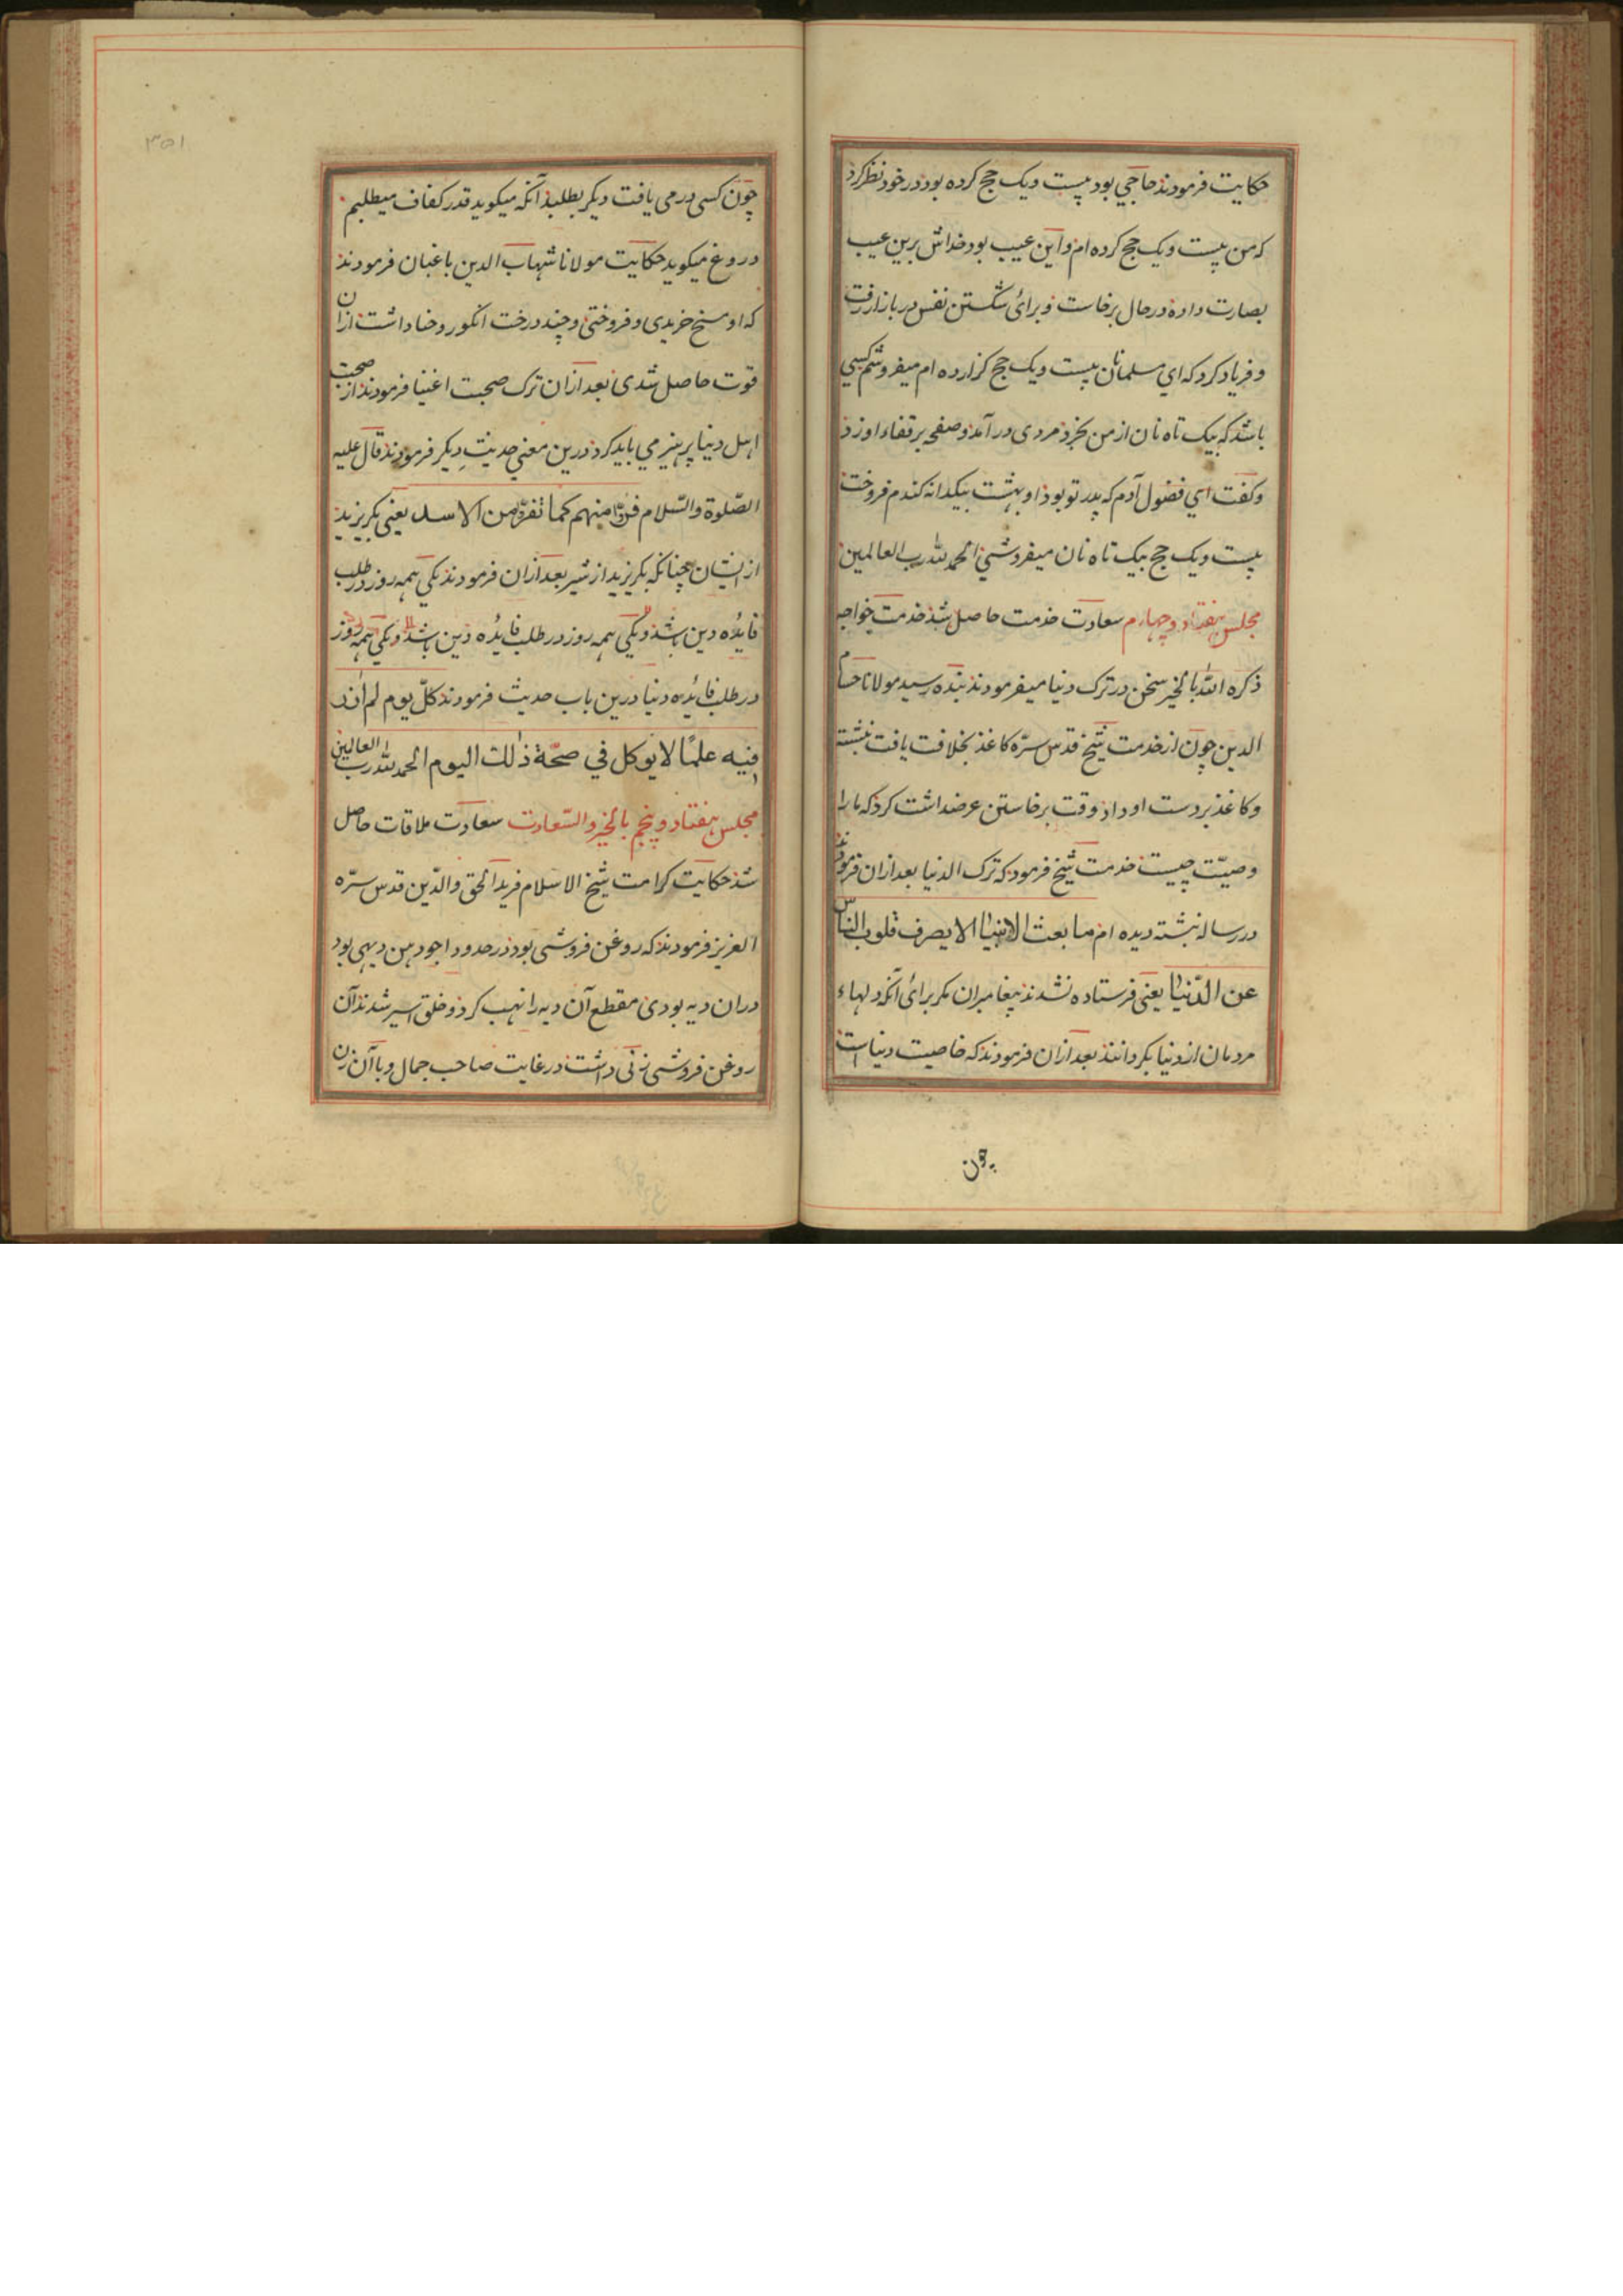 حکایت فرمودند حاجی بود بیست و یک حج کرده بود در خود نظر کرد
که من بیست و یک حج کرده ام و این عیب بود خداش برین عیب
بصارت داد در حال برخاست و برای شکستن نفس در بازار رفت
و فریاد کرد که ای مسلمانان بیست و یک حج گزارده ام میفروشم کسی
باشد که بیک تاه نان از من بخرد مردی در آمد و صفحه بر قفاء او زد
و گفت ای فضول آدم که پدر تو بود او بهشت بیکدانه گندم فروخت
بیست و یک حج بیک تاه نان میفروشی الحمد لله رب العالمین
مجلس هفتاد و چهارم سعادت خدمت حاصل شد خدمت خواجه
ذکره الله بالخیر سخن در ترک دنیا میفرمودند بنده رسید مولانا حسام
الدین چون از خدمت شیخ قدس سره کاغذ بخلافت یافت نبشته
و کاغذ بر دست او داد وقت برخاستن عرضداشت کرد که ما را
وصیّت چیست خدمت شیخ فرمود که ترک الدنیا بعد ازان فرمودند
در رساله نبشته دیده ام ما بعث الانبیا الا یصرف قلوب الناس
عن الدّنیا یعنی فرستاده نشدند پیغامبران مگر برای آنکه دلهاء
مردمان از دنیا بگردانند بعد ازان فرمودند که خاصیت دنیا است
چون
۳۵۱
چون کسی در می یافت دیگر بطلبد آنکه میگوید قدر کفاف میطلبم
دروغ میگوید حکایت مولانا شهاب الدین باغبان فرمودند
که او خریدی و فروختی و چند درخت انگور و حنا داشت ازان
قوت حاصل شدی بعد ازان ترک صحبت اغنیا فرمودند از صحبت
اهل دنیا پرهیز می باید کرد درین معنی حدیث دیگر فرمودند قال علیه
الصّلوة والسّلام فرّوا منهم کما تفرّ من الاسد یعنی بگریزید
از ایشان چنانکه بگریزید از شیر بعد ازان فرمودند یکی همه روز در طلب
فایده دین باشد و یکی همه روز در طلب فایده دین باشد و یکی همه روز
در طلب فایده دنیا درین باب حدیث فرمودند کلّ یوم لم ازدد
فیه علمًا لا بورک لی فی صحّة ذلک الیوم الحمد لله رب العالمین
مجلس هفتاد و پنجم بالخیر والسّعادت سعادت ملاقات حاصل
شد حکایت کرامت شیخ الاسلام فرید الحق والدّین قدس سرّه
العزیز فرمودند که روغن فروشی بود در حدود اجودهن دیهی بود
دران دیه بودی مقطع آن دیه را نهب کرد و خلق اسیر شدند آن
روغن فروشی زنی داشت در غایت صاحب جمال و با آن زن